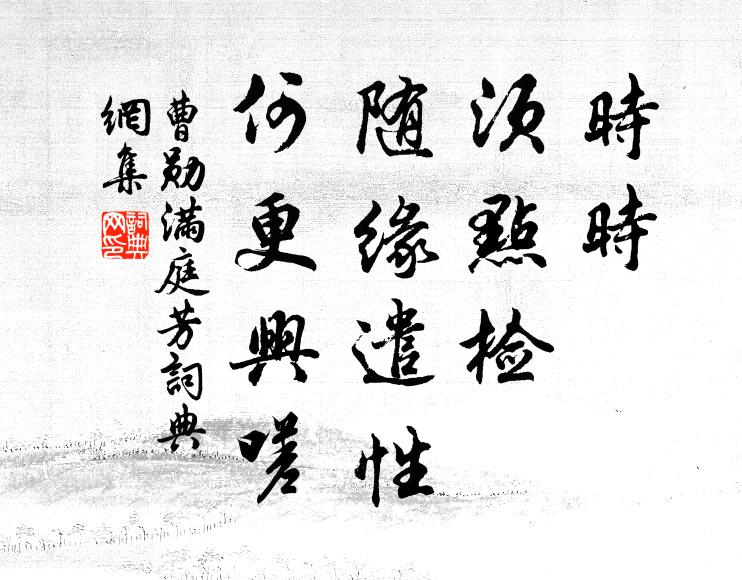 時時
須點檢
随緣遣性
何更興嗟
曹勛滿庭芳詞典
網集
詞典
网印